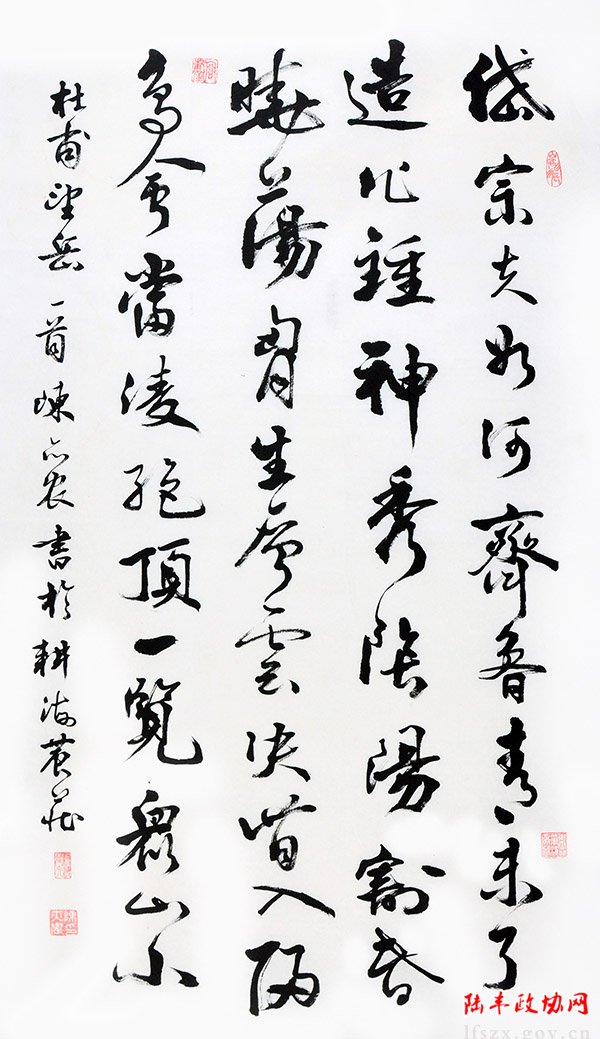 岱宗夫如何齊魯青未了
造化鍾神秀陰陽割昏
曉蕩胷生層雲決眥入歸
鳥會當凌絕頂一覽眾山小
杜甫望岳一首 陳农書於耕海农莊
陆丰政协网
lfszx.gov.cn